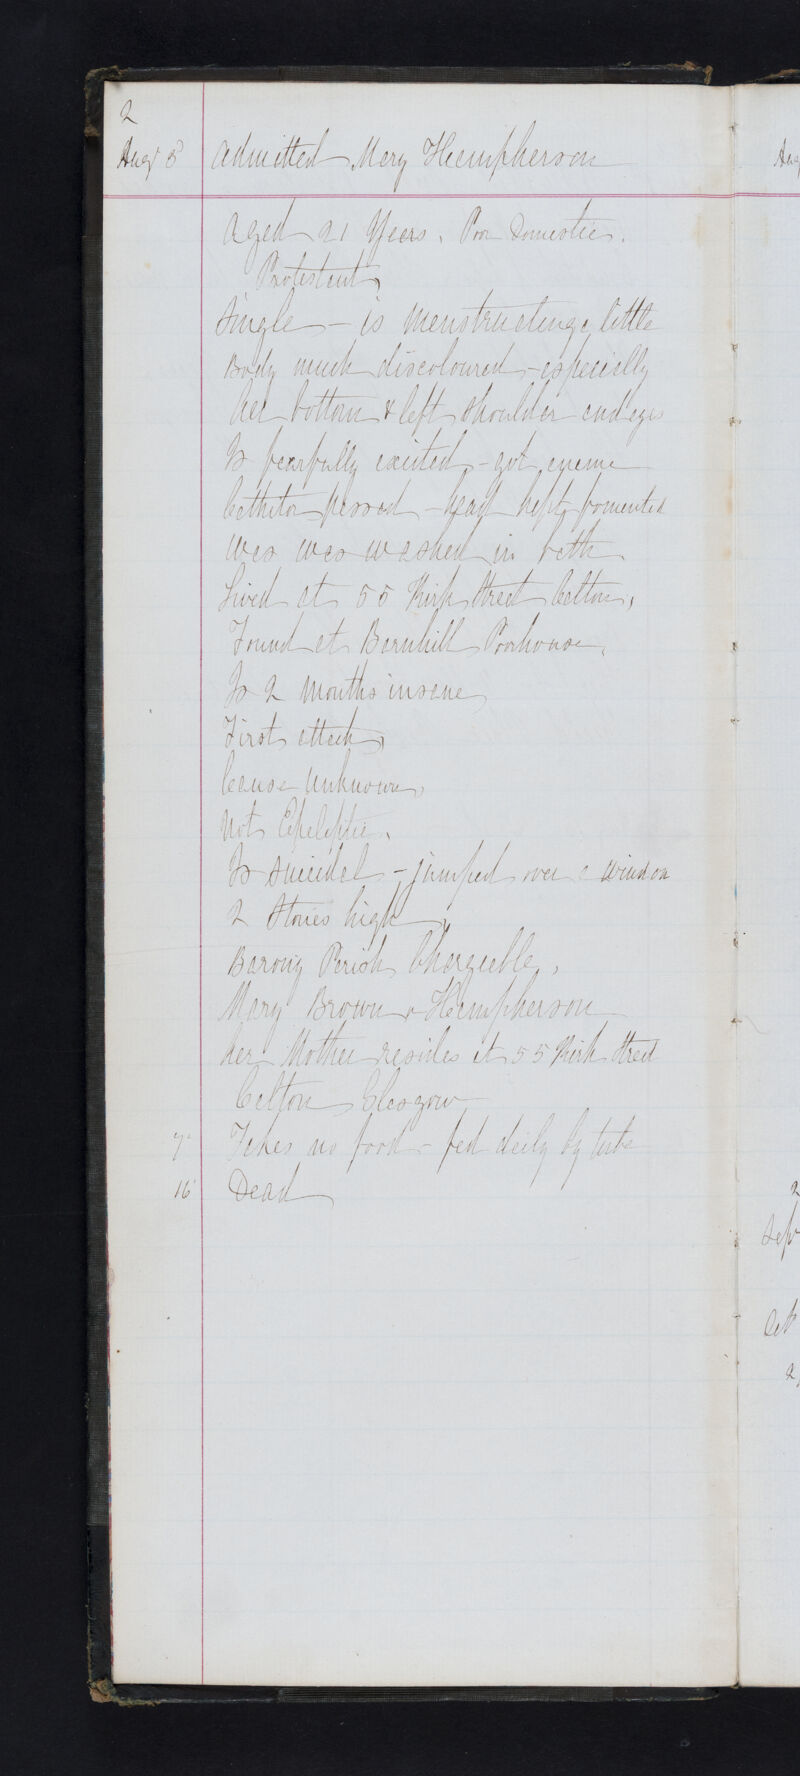 2
Augt 5 Admitted Mary Hempherson
Aged 21 Years. Poor Domestic.
Protestant
Single - is menstruating a little
Body much discoloured - especially
her bottom & left shoulder and eyes
Is fearfully excited - got enema
Catheter passed - head kept fomented
was was washed in bath
Lived at 55 Kirk Street Calton,
Found at Barnhill Poorhouse,
Is 2 months insane
First attack,
Cause unknown,
Not Epileptic.
Is suicidal - jumped over a window
2 Stories high,
Barony Parish Chargeable,
Mary Brown or Hempherson
her Mother resides at 55 Kirk Street
Calton Glasgow
7 Takes no food - fed daily by tube
16 Dead
Aug
2
Sep
Oct
2